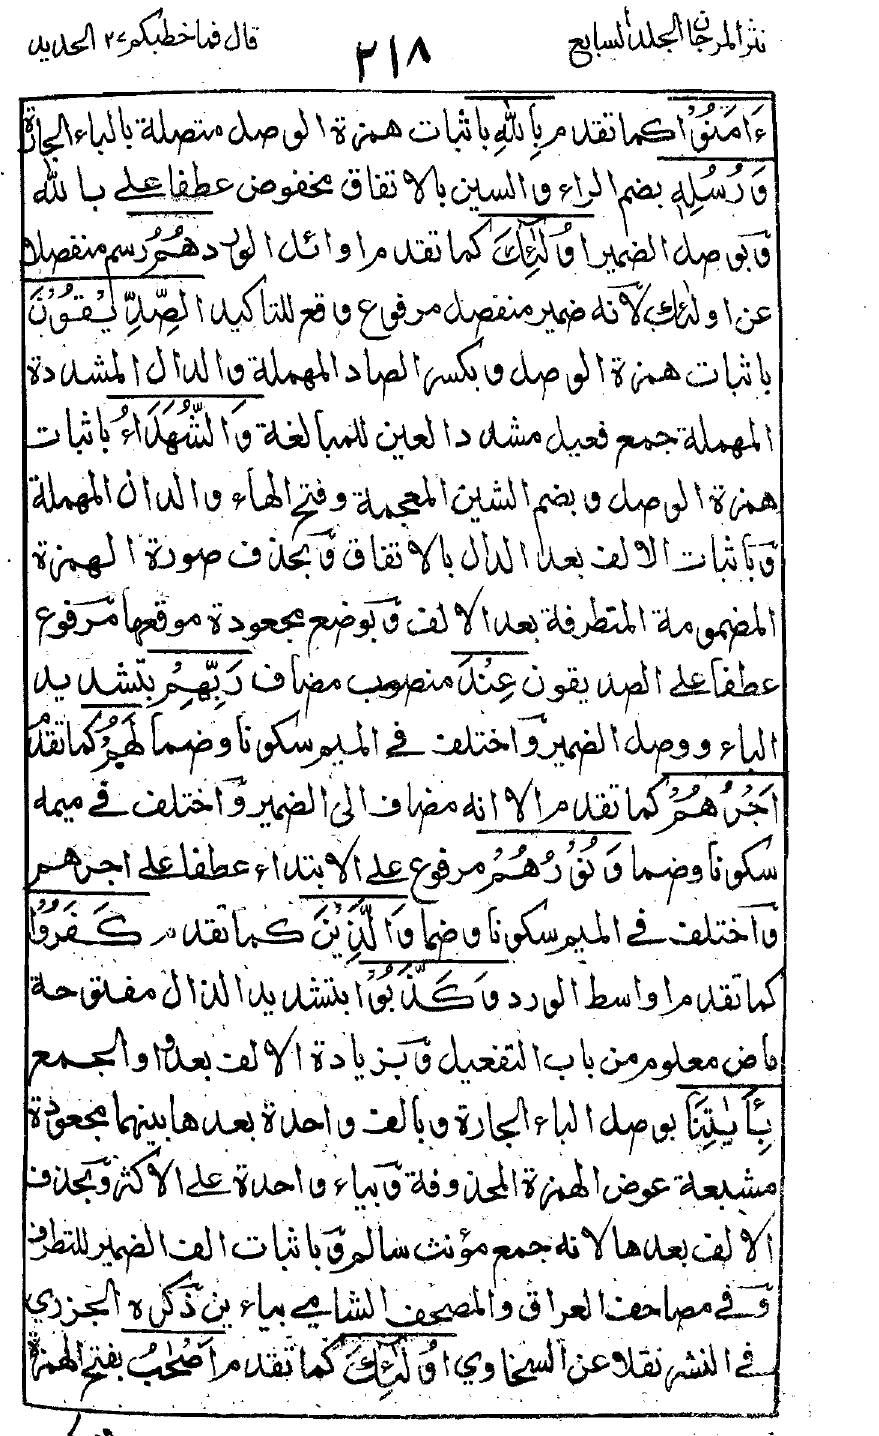 نثر المرجان المجلد السابع
٢١٨
قال فما خطبكم ٢٧ الحديد
ءَامَنُوْا كما تقدم بِاللهِ باثبات همزة الوصل متصلة بالباء الجارة
وَرُسُلِهٖ بضم الراء والسين بالاتفاق مخفوض عطفا على بالله
وبوصل الضمير اُولٰئِكَ كما تقدم اوائل الورد هُمُ رسم منفصلا
عن اولئك لانه ضمير منفصل مرفوع وقع للتاكيد الصِّدِّيْقُوْنَ
باثبات همزة الوصل وبكسر الصاد المهملة والدال المشددة
المهملة جمع فعيل مشدد العين للمبالغة وَالشُّهَدَاءُ باثبات
همزة الوصل وبضم الشين المعجمة وفتح الهاء والدال المهملة
وباثبات الالف بعد الدال بالاتفاق وبحذف صورة الهمزة
المضمومة المتطرفة بعد الالف وبوضع مجعودة موقعها مرفوع
عطفا على الصديقون عِنْدَ منصوب مضاف رَبِّهِمْ بتشديد
الباء ووصل الضمير واختلف في الميم سكونا وضما لَهُمْ كما تقدم
اَجْرُهُمْ كما تقدم الا انه مضاف الى الضمير واختلف في ميمه
سكونا وضما وَنُوْرُهُمْ مرفوع على الابتداء عطفا على اجرهم
واختلف في الميم سكونا وضما وَالَّذِيْنَ كما تقدم كَفَرُوْا
كما تقدم اواسط الورد وَكَذَّبُوْا بتشديد الذال مفتوحة
ماض معلوم من باب التفعيل وبزيادة الالف بعد واو الجمع
بِـَٔايٰتِنَا بوصل الباء الجارة وبالف واحدة بعدها بينهما مجعودة
مشبعة عوض الهمزة المحذوفة وبياء واحدة على الاكثر وبحذف
الالف بعدها لانه جمع مؤنث سالم وباثبات الف الضمير للتطرف
وفي مصاحف العراق والمصحف الشامي بياءين ذكره الجزري
في النشر نقلا عن السخاوي اُولٰئِكَ كما تقدم اَصْحٰبُ بفتح الهمزة